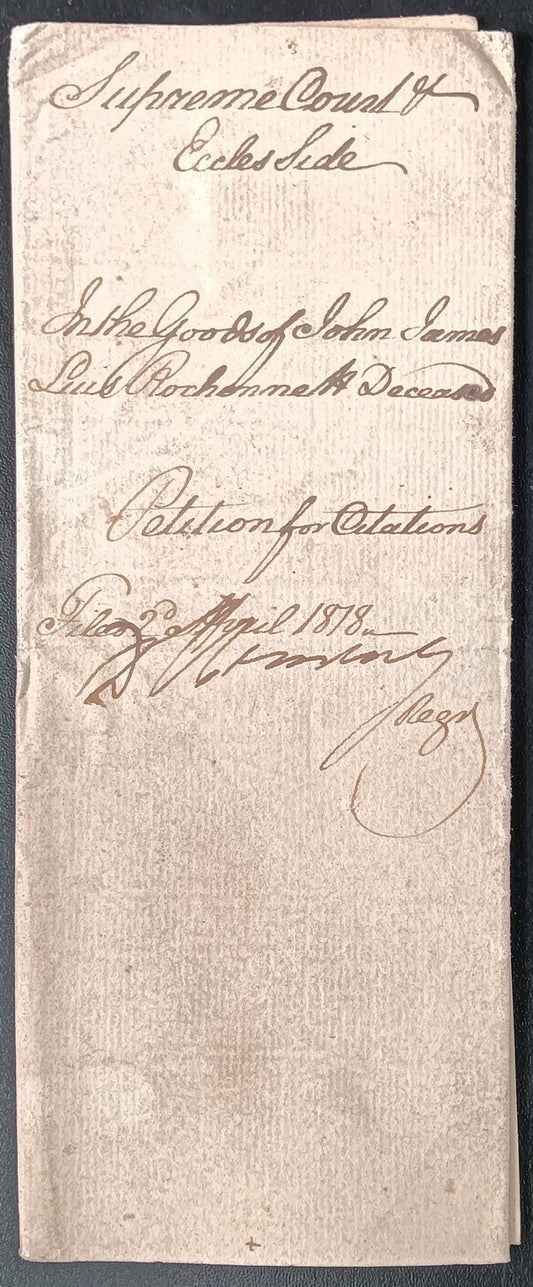 Supreme Court &
Eccles Side
In the Goods of John James
Luis Rochennett Deceased
Petition for Citations
Filed 2d April 1818
Regr